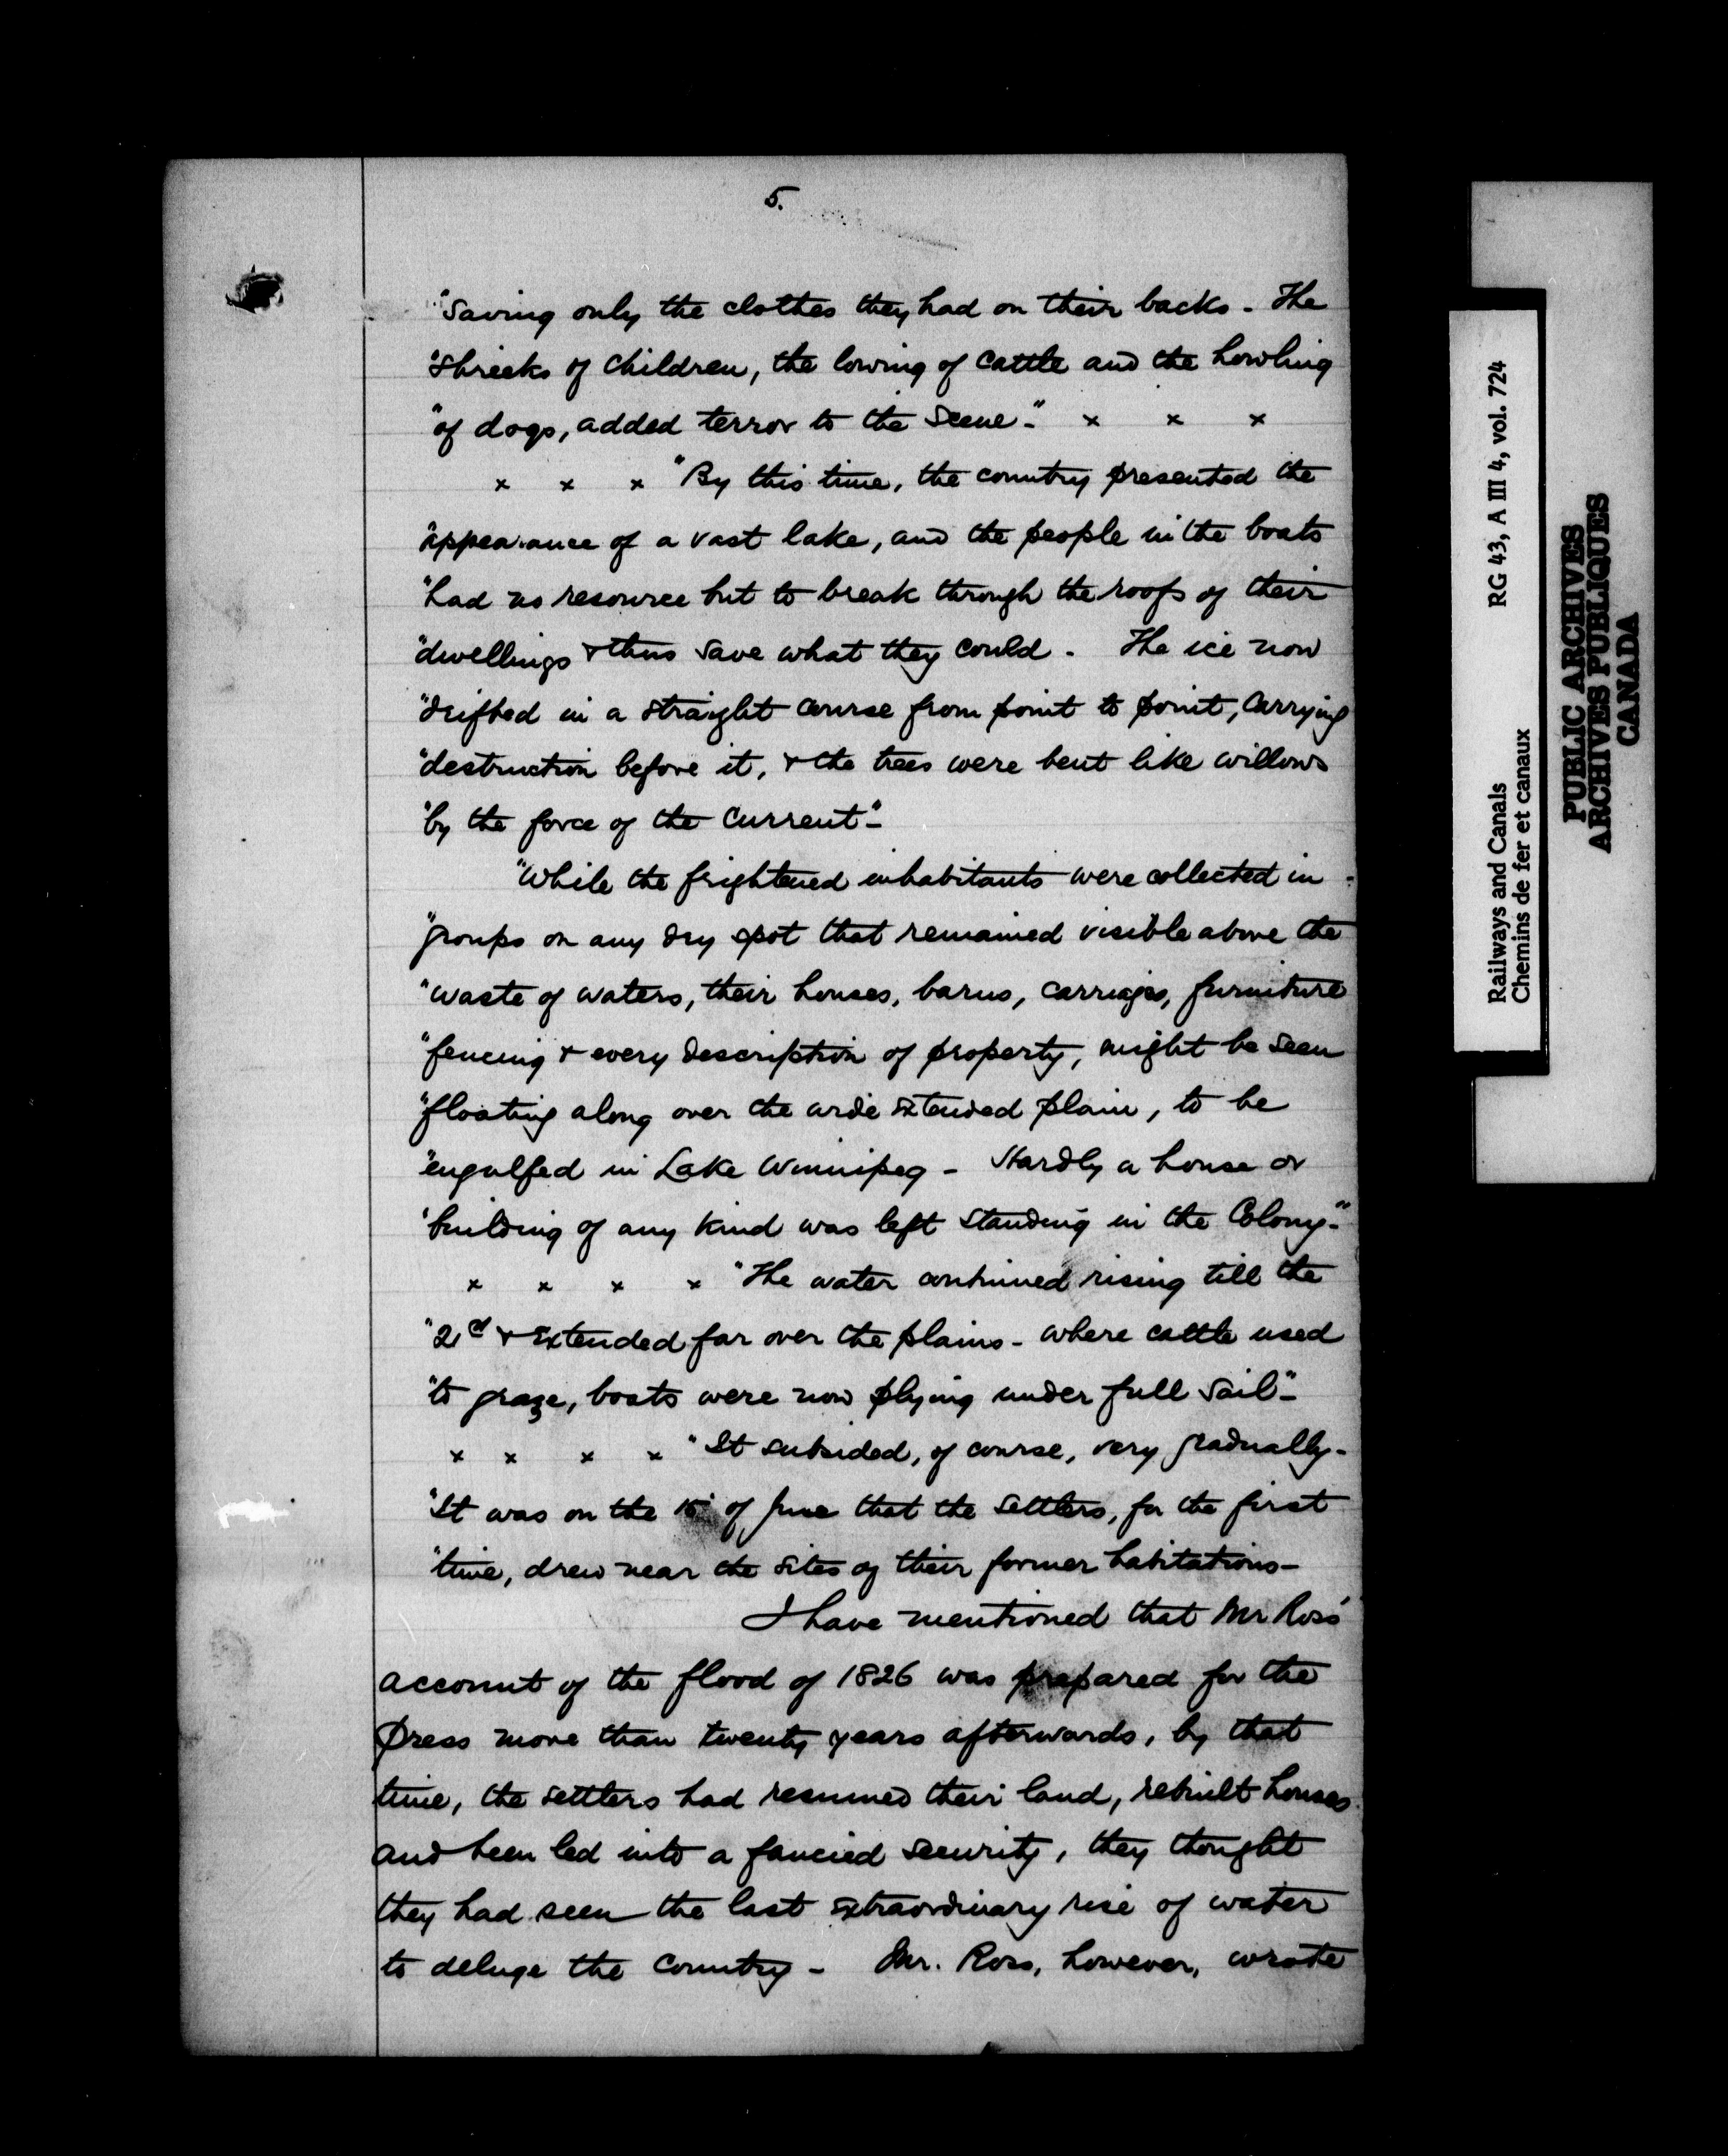 5.
"Saving only the clothes they had on their backs - The
"shrieks of children, the lowing of cattle and the howling
"of dogs, added terror to the scene -" x x x
x x x "By this time, the country presented the
"appearance of a vast lake, and the people in the boats
"had no resource but to break through the roofs of their
"dwellings & thus save what they could - The ice now
"drifted in a straight course from point to point, carrying
"destruction before it, & the trees were bent like willows
"by the force of the current" -
"While the frightened inhabitants were collected in -
"groups on any dry spot that remained visible above the
"waste of waters, their houses, barns, carriages, furniture
"fencing & every description of property, might be seen
"floating along over the wide extended plain, to be
"engulfed in Lake Winnipeg - Hardly a house or
"building of any kind was left standing in the Colony -"
x x x x "The water continued rising till the
"21st & extended far over the plains - where cattle used
"to graze, boats were now plying under full sail" -
x x x x "It subsided, of course, very gradually -
"It was on the 15 of June that the settlers, for the first
"time, drew near the sites of their former habitations -
I have mentioned that Mr Ross'
account of the flood of 1826 was prepared for the
press more than twenty years afterwards, by that
time, the settlers had resumed their land, rebuilt houses
and been led into a fancied security, they thought
they had seen the last extraordinary rise of water
to deluge the country - Mr. Ross, however, wrote
Railways and Canals RG 43, A III 4, vol. 724
Chemins de fer et canaux
PUBLIC ARCHIVES
ARCHIVES PUBLIQUES
CANADA